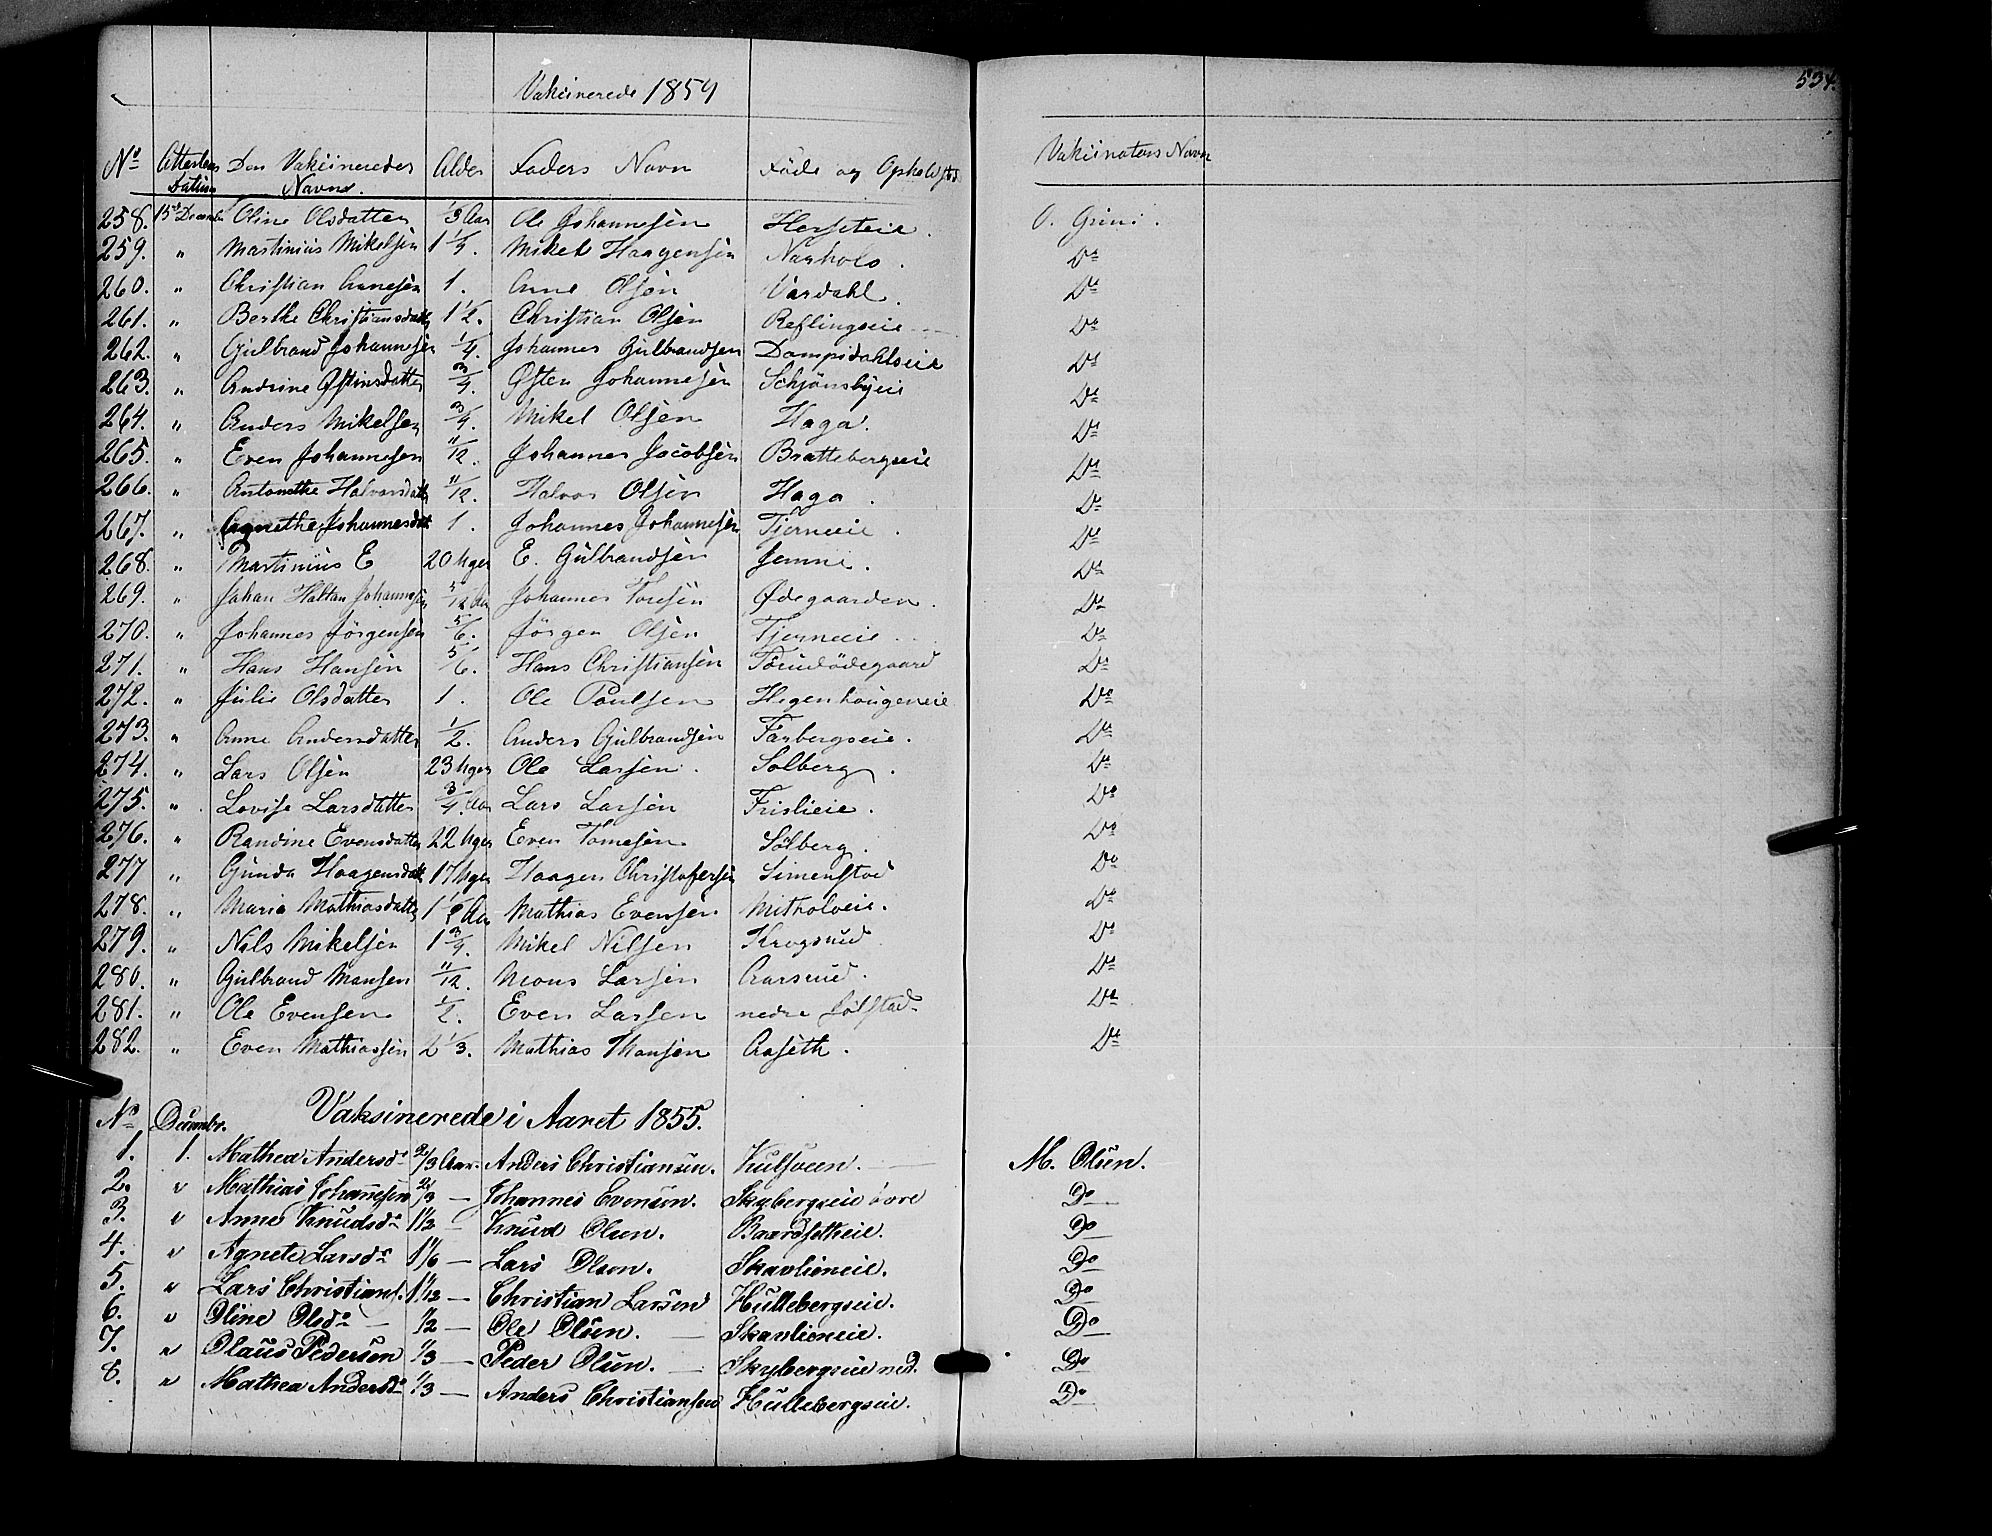 534.
Vakiinerede 1854
No Attestens Datum Den Vakiineredes Navn. Alder Faders Navn Føde og Opholdsted Vakiinators Navn
258. 15de December Oline Olsdatter 1/3 Aar Ole Johannesen Hersteie. O. Grini.
259. " Martinius Mikelsen 1 1/4. Mikel Haagensen Narholo. Do
260. " Christian Arnesen 1. Arne Olsen Vardahl. Do
261. " Berthe Christiansdatter 1 1/2. Christian Olsen Reflingseie Do
262. " Gulbrand Johannesen 1/4. Johannes Gulbrandsen Dampidahlseie Do
263. " Andrine Østensdatter 3/4. Østen Johannesen Schjønsbyeie Do
264. " Anders Mikelsen 3/4. Mikel Olsen Haga. Do
265. " Even Johannesen 11/12. Johannes Jacobsen Brattebergseie Do
266. " Antonethe Halvorsdatter 11/12. Halvor Olsen Haga. Do
267. " Agnethe Johannesdatt 1. Johannes Johannesen Tjerneeie. Do
268. " Martinius E 20 Uger E. Gulbrandsen Jemne. Do
269. " Johan Haltan Johannesen 5/12 Aar Johannes Toresen Ødegaarden. Do
270. " Johannes Jörgensen 5/6. Jörgen Olsen Tjerneeie. Do
271. " Hans Hansen 5/6. Hans Christiansen Torudödegaard Do
272. " Julie Olsdatter 1. Ole Poulsen Hegenhaugeneie Do
273. " Anne Andersdatter 1/2. Anders Gulbrandsen Farbergseie. Do
274. " Lars Olsen 23 Uger Ole Larsen. Solberg. Do
275. " Lovise Larsdatter 3/4. Aar Lars Larsen Frislieie. Do
276. " Randine Evensdatter 22 Uger Even Tomesen Solberg. Do
277 " Gunda Haagensdatt 17 Uger Haagen Christofersen Simenstad Do
278. " Maria Mathiasdatter 1 1/2 Aar Mathias Evensen Mitholoeie. Do
279. " Nils Mikelsen 1 3/4. Mikel Nilsen Krogsrud Do
280. " Gulbrand Monsen 11/12. Mons Larsen Aarsrud. Do
281. " Ole Evensen 1/2. Even Larsen nedre Sølstad. Do
282. " Even Mathiassen 2 1/3. Mathias Monsen Aaseth. Do
No Decembr. Vaksinerede i Aaret 1855.
1. 1. Mathea Andersdr 2/3 Aar. Anders Christiansen. Kulsveen. M. Olsen.
2. " Mathias Johannesen 2/3 — Johannes Evensen. Skybergseie övre Do
3. " Anne Knudsdr 1 1/2 — Knud Olsen. Baardsetheie. Do
4. " Agnete Larsdr 1 1/6 — Lars Olsen. Skavlieneie. Do
5. " Lars Christians. 1 1/12 — Christian Larsen Hullebergseie. Do
6. " Oline Olsdr — 1/2 — Ole Olsen. — Skavlieneie. Do
7. " Olaus Pedersen 1/3 — Peder Olsen. — Skybergseie ned. Do
8. " Mathea Andersdr 1/3 — Anders Christiansen Hullebergseie. Do